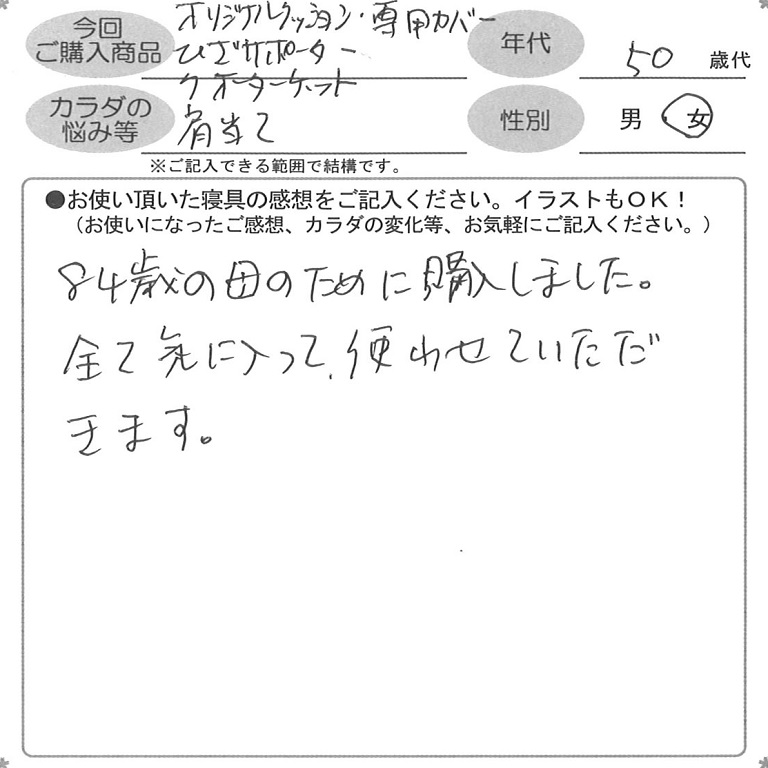 今回
ご購入商品
オリジナルクッション・専用カバー
ひざサポーター
クオーターケット
肩当て
年代
50 歳代
カラダの
悩み等
性別
男 ・ 女
※ご記入できる範囲で結構です。
●お使い頂いた寝具の感想をご記入ください。イラストもOK！
（お使いになったご感想、カラダの変化等、お気軽にご記入ください。）
84歳の母のために購入しました。
全て気に入って、使わせていただ
きます。